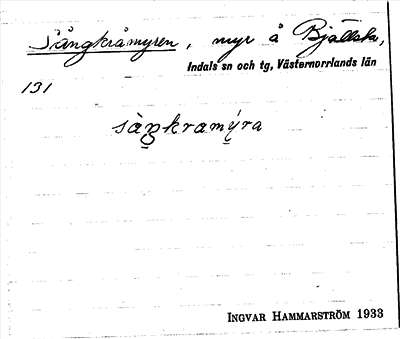 Sångkråmyren, myr å Bjällsta,
Indals sn och tg, Västernorrlands län
131
sàŋkramýra
INGVAR HAMMARSTRÖM 1933